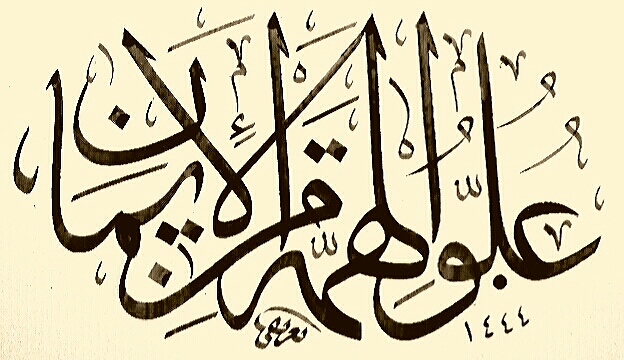 عُلُوُّ الهِمَّةِ مِنَ الإِيمَانِ
١٤٤٤